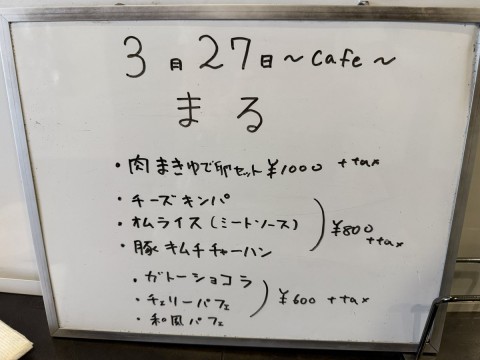 3月27日～cafe～
まる
・肉まきゆで卵セット ¥1000 ++tax
・チーズキンパ
・オムライス(ミートソース) ¥800 ++tax
・豚キムチチャーハン
・ガトーショコラ
・チェリーパフェ ¥600 ++tax
・和風パフェ